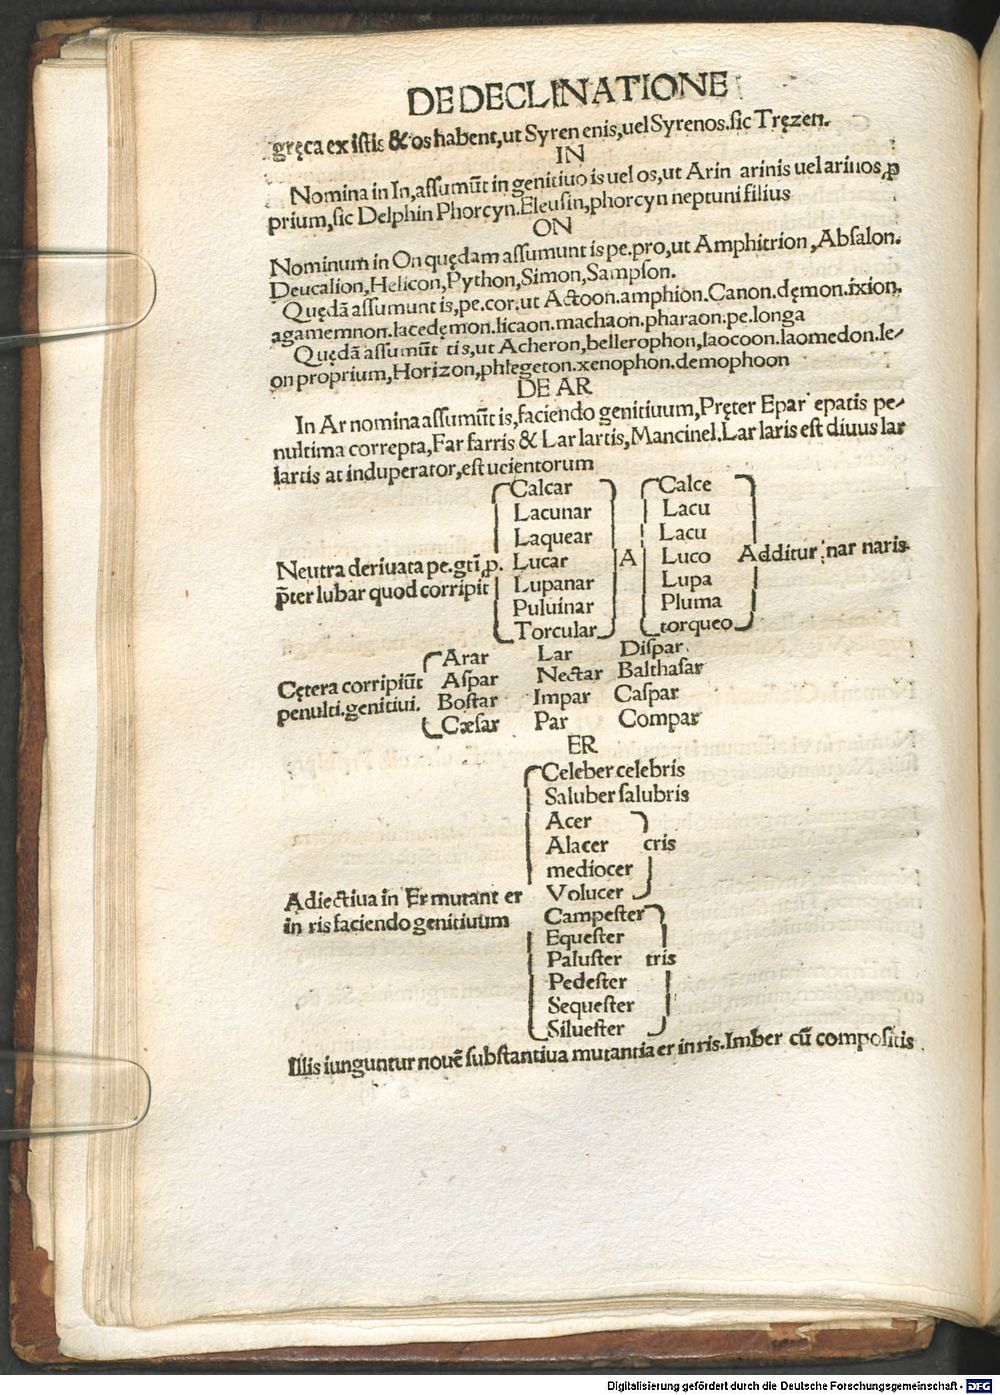 DE DECLINATIONE
gręca ex istis & os habent, ut Syren enis, uel Syrenos. sic Tręzen.
IN
Nomina in In, assumūt in genitiuo is uel os, ut Arin arinis uel arinos, ꝓ
prium, sic Delphin Phorcyn. Eleusin, phorcyn neptuni filius
ON
Nominum in On quędam assumunt is pe. pro, ut Amphitrion, Absalon.
Deucalion, Helicon, Python, Simon, Sampson.
Quędā assumunt is, pe. cor. ut Actoon. amphion. Canon. dęmon. ixion.
agamemnon. lacedęmon. licaon. machaon. pharaon. pe. longa
Quędā assumūt tis, ut Acheron, bellerophon, laocoon. laomedon. le-
on proprium, Horizon, phlegeton. xenophon. demophoon
DE AR
In Ar nomina assumūt is, faciendo genitiuum, Pręter Epar epatis pe-
nultima correpta, Far farris & Lar lartis, Mancinel. Lar laris est diuus lar
lartis at induperator, est ucientorum
Calcar Calce
Lacunar Lacu
Laquear Lacu
Neutra deriuata pe. gti, p. Lucar A Luco Additur nar naris.
p̄ter lubar quod corripit Lupanar Lupa
Puluinar Pluma
Torcular torqueo
Arar Lar Dispar
Cętera corripiūt Aspar Nectar Balthasar
penulti. genitiui. Bostar Impar Caspar
Cæsar Par Compar
ER
Celeber celebris
Saluber salubris
Acer
Alacer cris
mediocer
Adiectiua in Er mutant er Volucer
in ris faciendo genitiuum Campester
Equester
Paluster tris
Pedester
Sequester
Siluester
Illis iunguntur nouē substantiua mutantia er in ris. Imber cū compositis
Digitalisierung gefördert durch die Deutsche Forschungsgemeinschaft - DFG